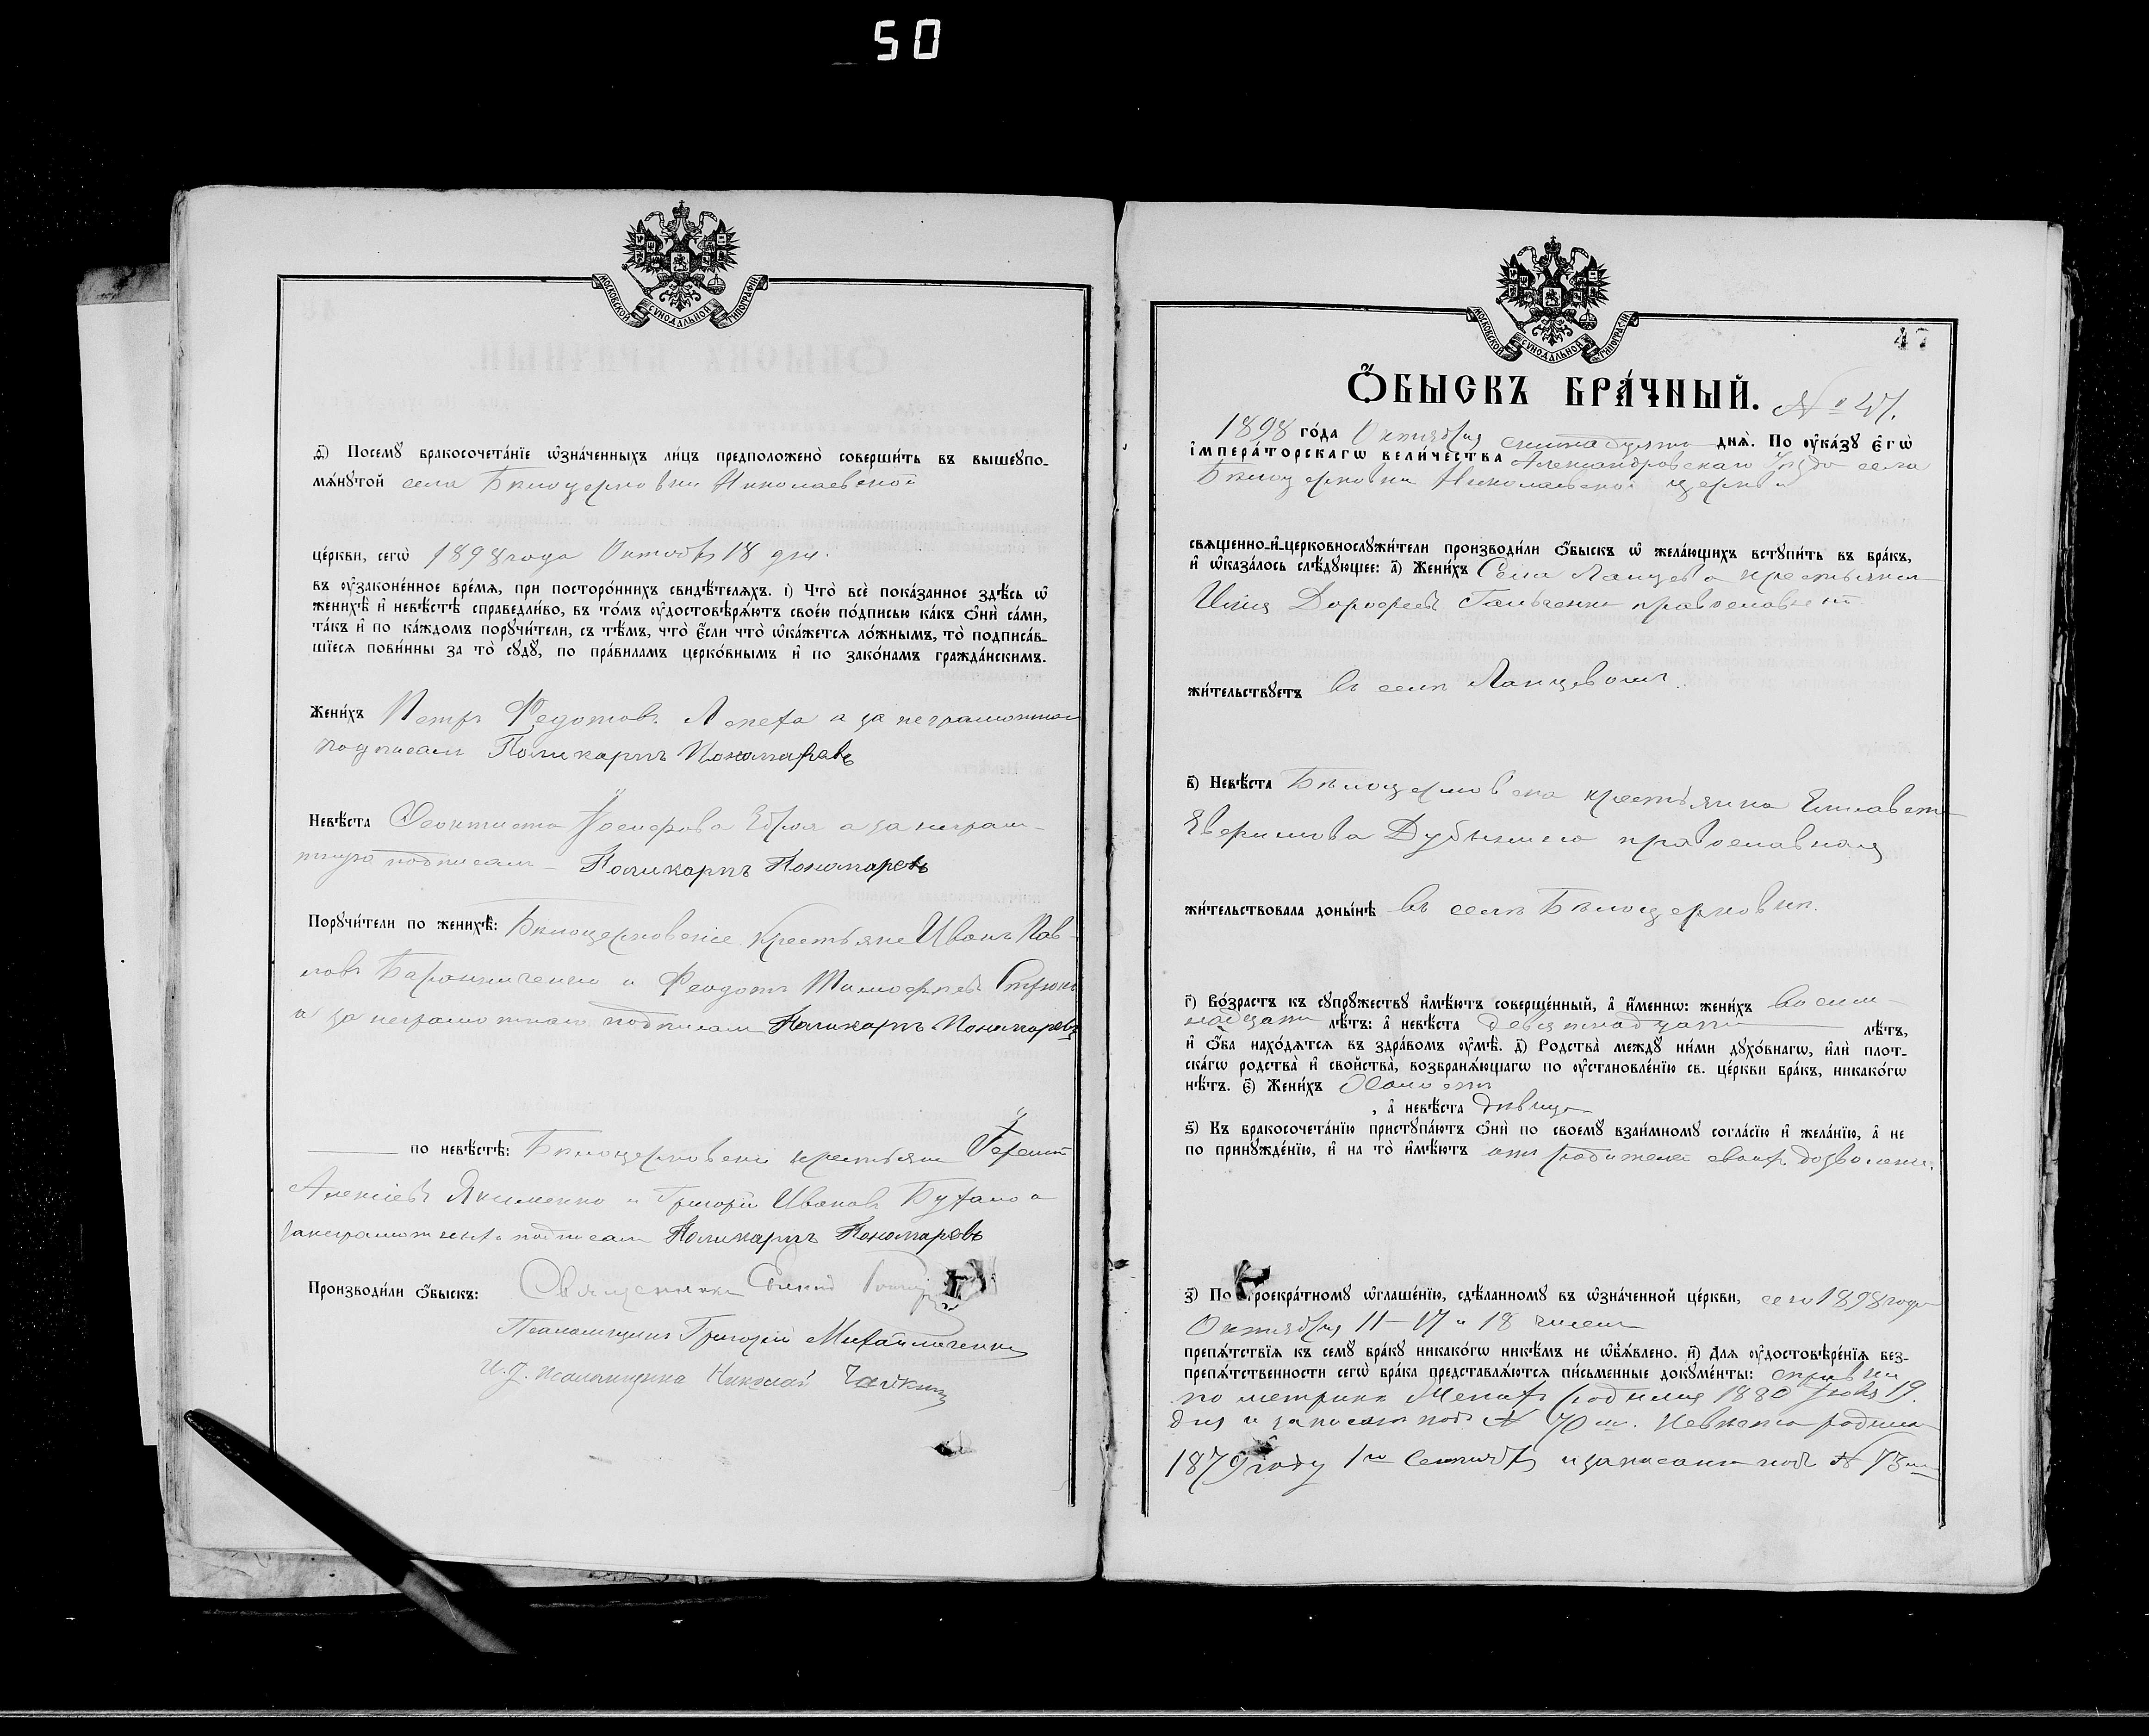 50
МОСКОВСКОЙ СѴНОДАЛЬНОЙ ТИПОГРАФІИ
д҃і) Посемꙋ бракосочета́нїе ѡ҆зна́ченныхъ ли́цъ предположено̀ соверши́ть въ вышеꙋпо-
мѧ́нꙋтой села Бѣлоцерковки Николаевской
це́ркви, сегѡ̀ 1898 года Октября 18 дня.
въ ᲂу҆зако́ненное вре́мѧ, при посторо́ннихъ свидѣ́телѧхъ. і҃) Что̀ всѐ пока́занное здѣ́сь ѡ҆
женихѣ̀ и҆ невѣ́стѣ справедли́во, въ то́мъ ᲂу҆достовѣрѧ́ютъ свое́ю по́дписью ка́къ ѻ҆нѝ са́ми,
та́къ и҆ по ка́ждомъ порꙋчи́тели, съ тѣ́мъ, что̀ є҆́сли что̀ ѡ҆ка́жется ло́жнымъ, то̀ подписа́в-
шїеся пови́нны за то̀ сꙋдꙋ̀, по пра́виламъ церко́внымъ и҆ по зако́намъ гражда́нскимъ.
Жени́хъ Петръ Федотовъ Лепеха а за неграмотнаго
подписалъ Поликарпъ Пономаревъ
Невѣ́ста Феоктиста а за неграмо-
тную подписалъ Поликарпъ Пономаревъ
Порꙋчи́тели по женихѣ̀: Бѣлоцерковскіе крестьяне Иванъ Пав-
ловъ и Феодотъ Тимофеевъ
а за неграмотныхъ подписалъ Поликарпъ Пономаревъ
по невѣ́стѣ: Бѣлоцерковскіе крестьяне
Алексіевъ Якименко и Григорій Ивановъ а
за неграмотныхъ подписалъ Поликарпъ Пономаревъ
Производи́ли ѻ҆́быскъ: Священникъ
Псаломщикъ Григорій Михайличенко
И. д. псаломщика Николай
МОСКОВСКОЙ СѴНОДАЛЬНОЙ ТИПОГРАФІИ
47
Ѻ҆́БЫСКЪ БРА́ЧНЫЙ. № 47.
1898 го́да Октября семнадцатаго днѧ̀. По ᲂу҆ка́зꙋ є҆гѡ̀
і҆мпера́торскагѡ вели́чества Александровскаго уѣзда села
Бѣлоцерковки Николаевской церкви
свѧщенно-и҆-церковнослꙋжи́тели производи́ли ѻ҆́быскъ ѡ҆ жела́ющихъ встꙋпи́ть въ бра́къ,
и҆ ѡ҆каза́лось слѣ́дꙋющее: а҃) Жени́хъ Села Ланцева крестьянинъ
Илія Дорофеевъ Гальченко православный
жи́тельствꙋетъ въ селѣ Ланцевомъ.
в҃) Невѣ́ста Бѣлоцерковская крестьянка Елисавета
Евфимова православная
жи́тельствовала доны́нѣ въ селѣ Бѣлоцерковкѣ.
г҃) Во́зрастъ къ сꙋпрꙋ́жествꙋ и҆мѣ́ютъ соверше́нный, а҆ и҆́меннѡ: жени́хъ восем-
надцати лѣ́тъ: а҆ невѣ́ста девятнадцати лѣ́тъ,
и҆ ѻ҆́ба нахо́дѧтсѧ въ здра́вомъ ᲂу҆мѣ̀. д҃) Родства̀ междꙋ̀ ни́ми дꙋхо́внагѡ, и҆лѝ плот-
ска́гѡ родства̀ и҆ сво́йства, возбранѧ́ющагѡ по ᲂу҆становле́нїю св. це́ркви бра́къ, никако́гѡ
нѣ́тъ. є҃) Жени́хъ Холостъ
, а҆ невѣ́ста дѣвица
ѕ҃) Къ бракосочета́нїю пристꙋпа́ютъ ѻ҆нѝ по своемꙋ̀ взаи́мномꙋ согла́сїю и҆ жела́нїю, а҆ не
по принꙋжде́нїю, и҆ на то̀ и҆мѣ́ютъ отъ родителей своихъ дозволеніе.
з҃) По троекра́тномꙋ ѡ҆глаше́нїю, сдѣ́ланномꙋ въ ѡ҆зна́ченной це́ркви, сего 1898 года
Октября 11 – 17 и 18 чиселъ
препѧ́тствїѧ къ семꙋ̀ бра́кꙋ никако́гѡ никѣ́мъ не ѡ҆б̾ѧ́влено. и҃) Длѧ ᲂу҆достовѣре́нїѧ без-
препѧ́тственности сегѡ̀ бра́ка представлѧ́ютсѧ пи́сьменные докꙋме́нты: справки
по метрикѣ Женихъ родился 1880 Іюля 19
дня и записанъ подъ № 70 м. Невѣста родилась
1879 году 1го Сентября и записана подъ №